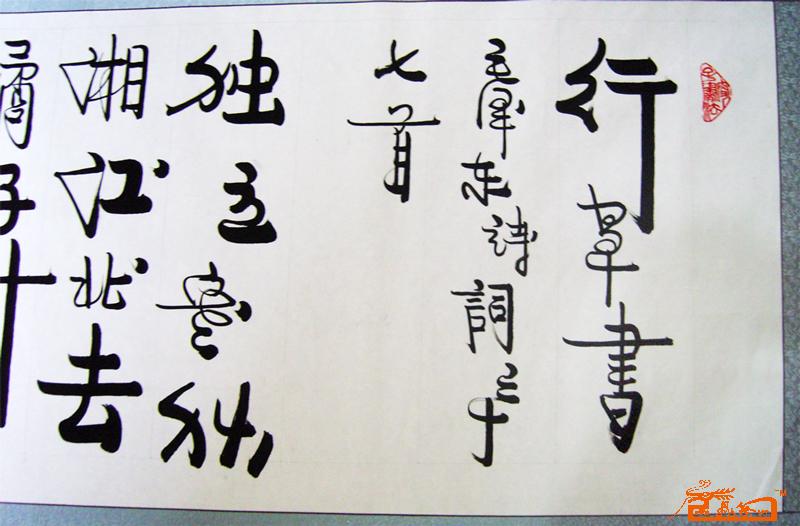 行草書
毛澤东詩詞三十
七首
独立寒秋
湘江北去